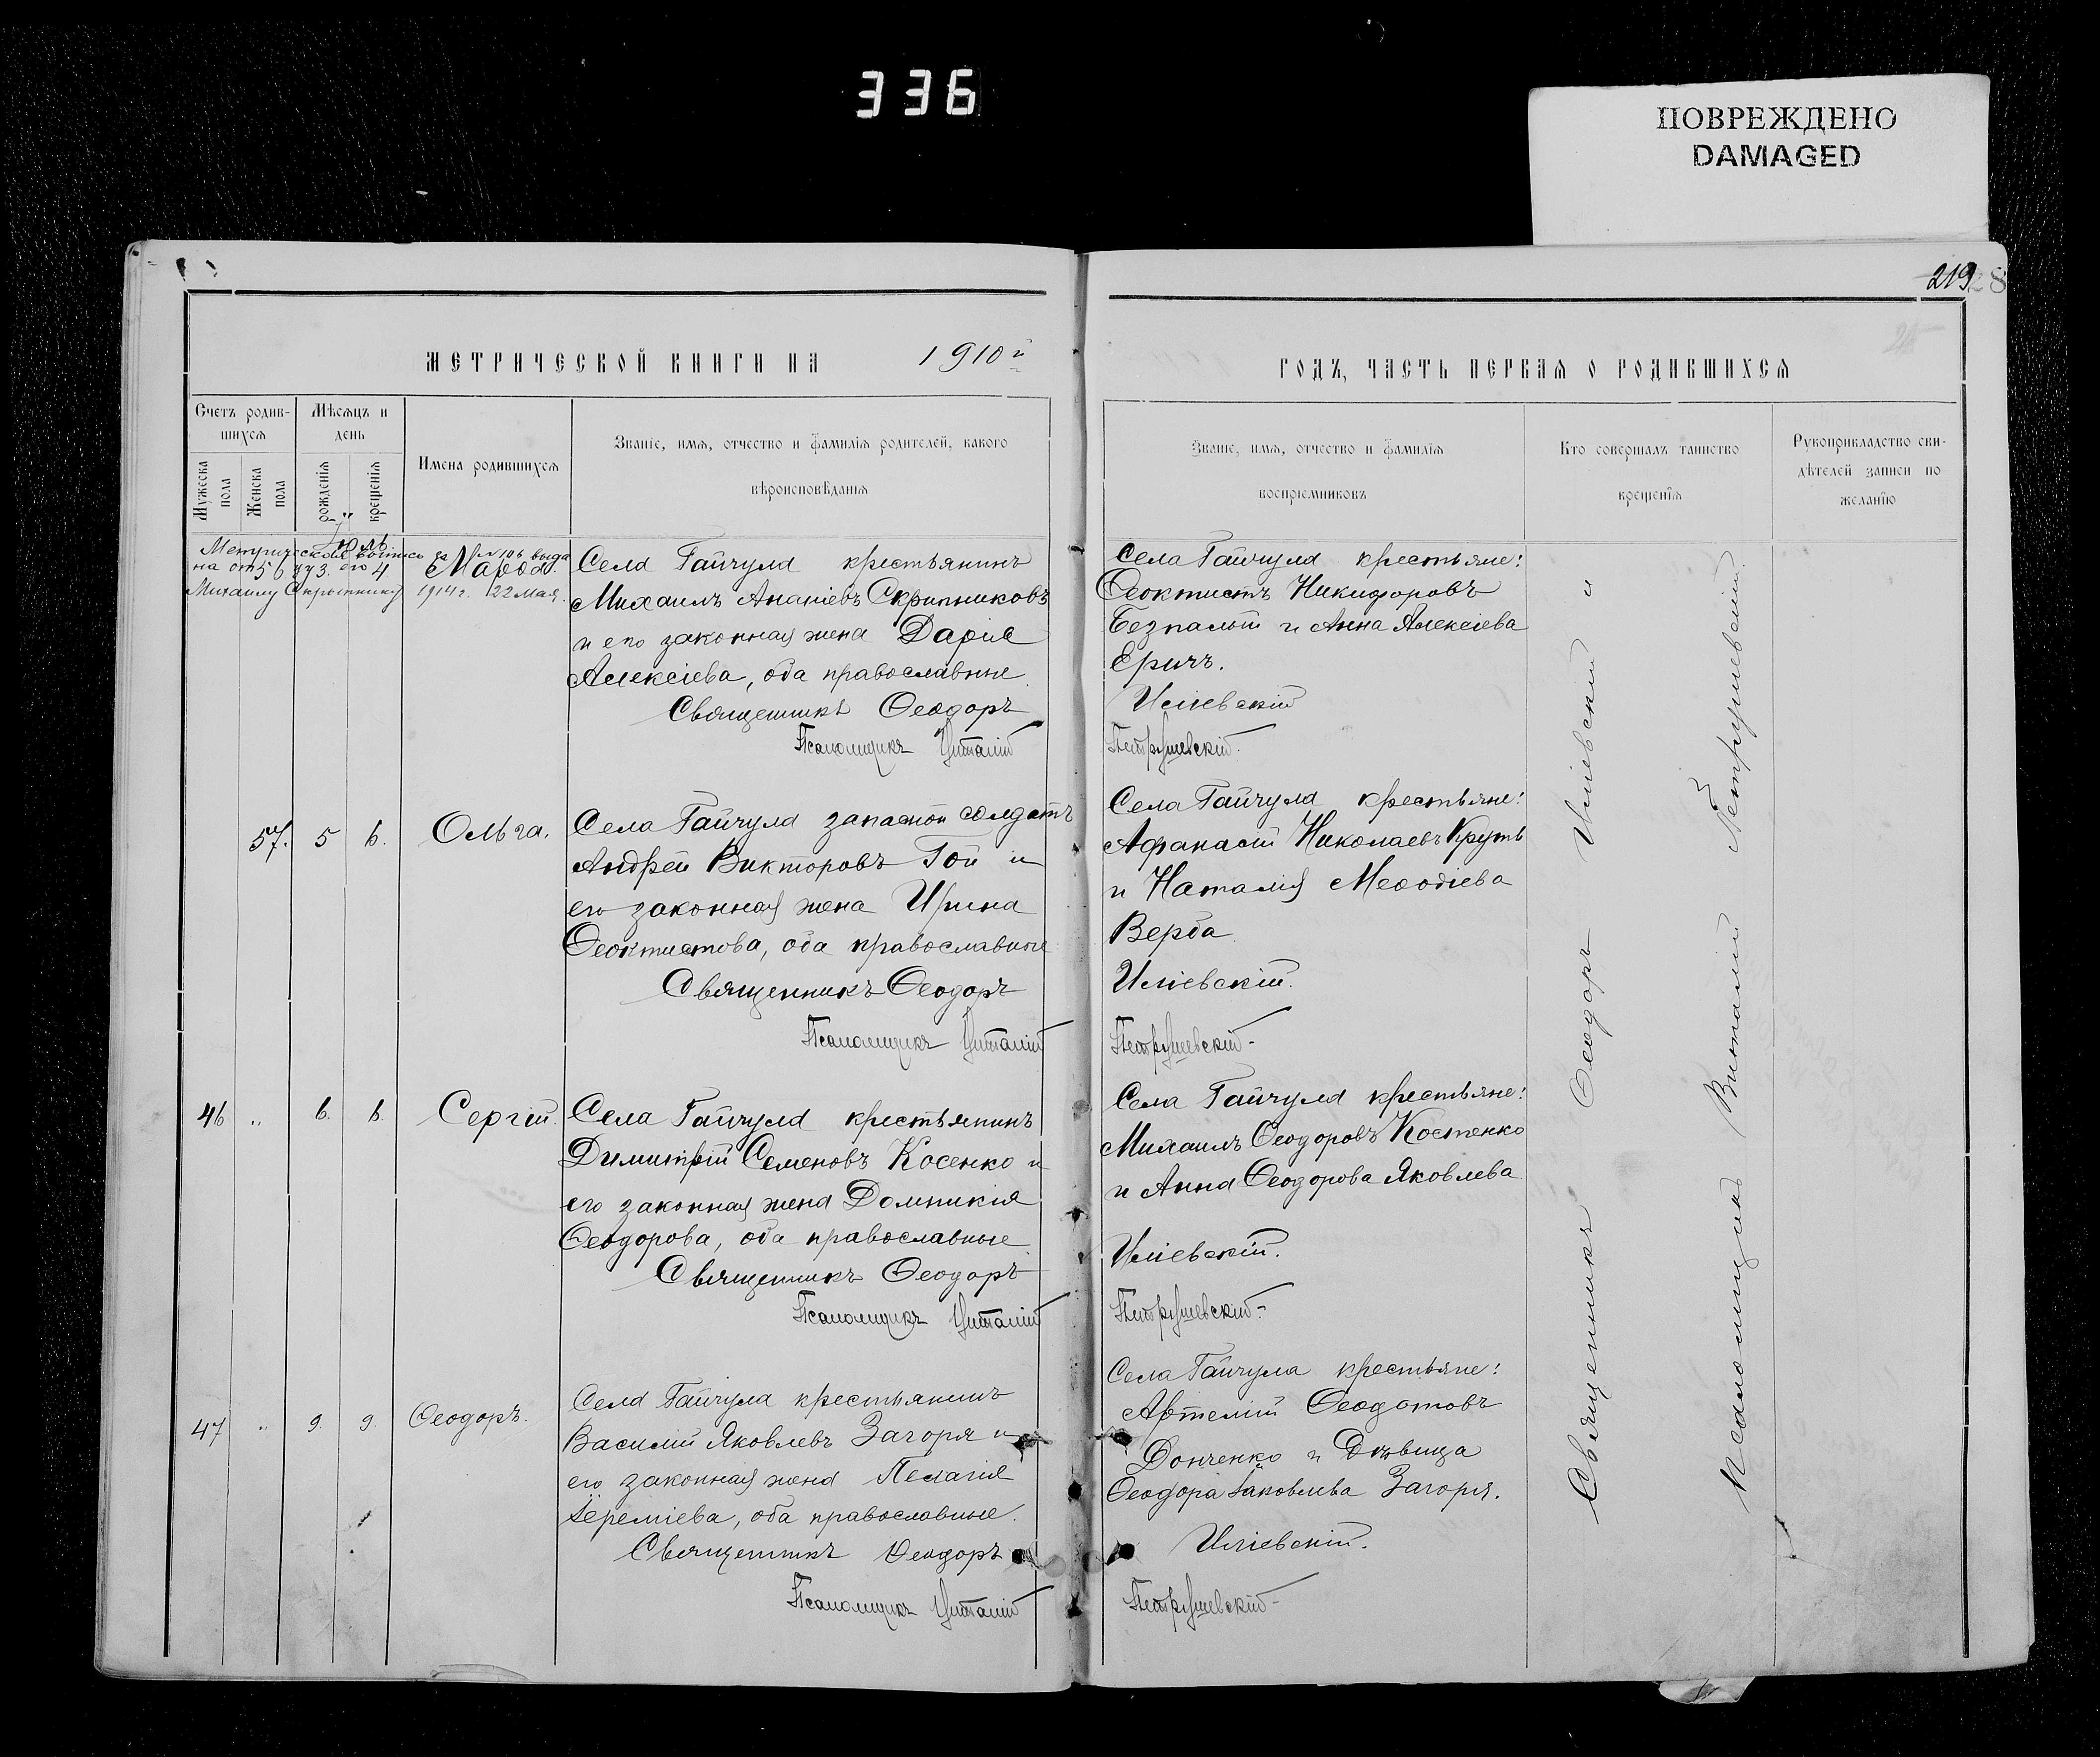 336
ПОВРЕЖДЕНО
DAMAGED
219
28
МЕТРИЧЕСКОЙ КНИГИ НА 1910й
ГОДЪ, ЧАСТЬ ПЕРВАЯ О РОДИВШИХСЯ
Счетъ родив-
шихся
Мужеска пола
Женска пола
Мѣсяцъ и
день
рожденія
крещенія
Имена родившихся
Званіе, имя, отчество и фамилія родителей, какого
вѣроисповѣданія
Званіе, имя, отчество и фамилія
воспріемниковъ
Кто совершалъ таинство
крещенія
Рукоприкладство сви-
дѣтелей записи по
желанію
Метрическая выпись за № 106 выда
на
Михаилу Скрыпнику 1914 г. 22 Мая.
56 3. 4 Марѳа.
Села Гайчула крестьянинъ
Михаилъ Ананіевъ Скрипниковъ
и его законная жена Дарія
Алексіева, оба православные
Священникъ Ѳеодоръ
Псаломщикъ Виталій
Села Гайчула крестьяне:
Ѳеоктистъ Никифоровъ
Безпалый и Анна Алексіева
Еричъ.
Иліевскій
Петрушевскій.
57. 5 6. Ольга.
Села Гайчула запасной солдатъ
Андрей Викторовъ Гой и
его законная жена Ирина
Ѳеоктистова, оба православные
Священникъ Ѳеодоръ
Псаломщикъ Виталій
Села Гайчула крестьяне:
Афанасій Николаевъ Круть
и Наталія Меѳодіева
Верба
Иліевскій.
Петрушевскій
46 " 6. 6 Сергій.
Села Гайчула крестьянинъ
Димитрій Семеновъ Косенко и
его законная жена Домникія
Ѳеодорова, оба православные
Священникъ Ѳеодоръ
Псаломщикъ Виталій
Села Гайчула крестьяне:
Михаилъ Ѳеодоровъ Костенко
и Анна Ѳеодорова Яковлева
Иліевскій.
Петрушевскій
47 " 9. 9. Ѳеодоръ.
Села Гайчула крестьянинъ
Василій Яковлевъ Загоря и
его законная жена Пелагія
Іереміева, оба православные.
Священникъ Ѳеодоръ
Псаломщикъ Виталій
Села Гайчула крестьяне:
Артемій Ѳеодотовъ
Донченко и Дѣвица
Ѳеодора Іаковлева Загоря.
Иліевскій.
Петрушевскій
Священникъ Ѳеодоръ Иліевскій и
Псаломщикъ Виталій Петрушевскій.